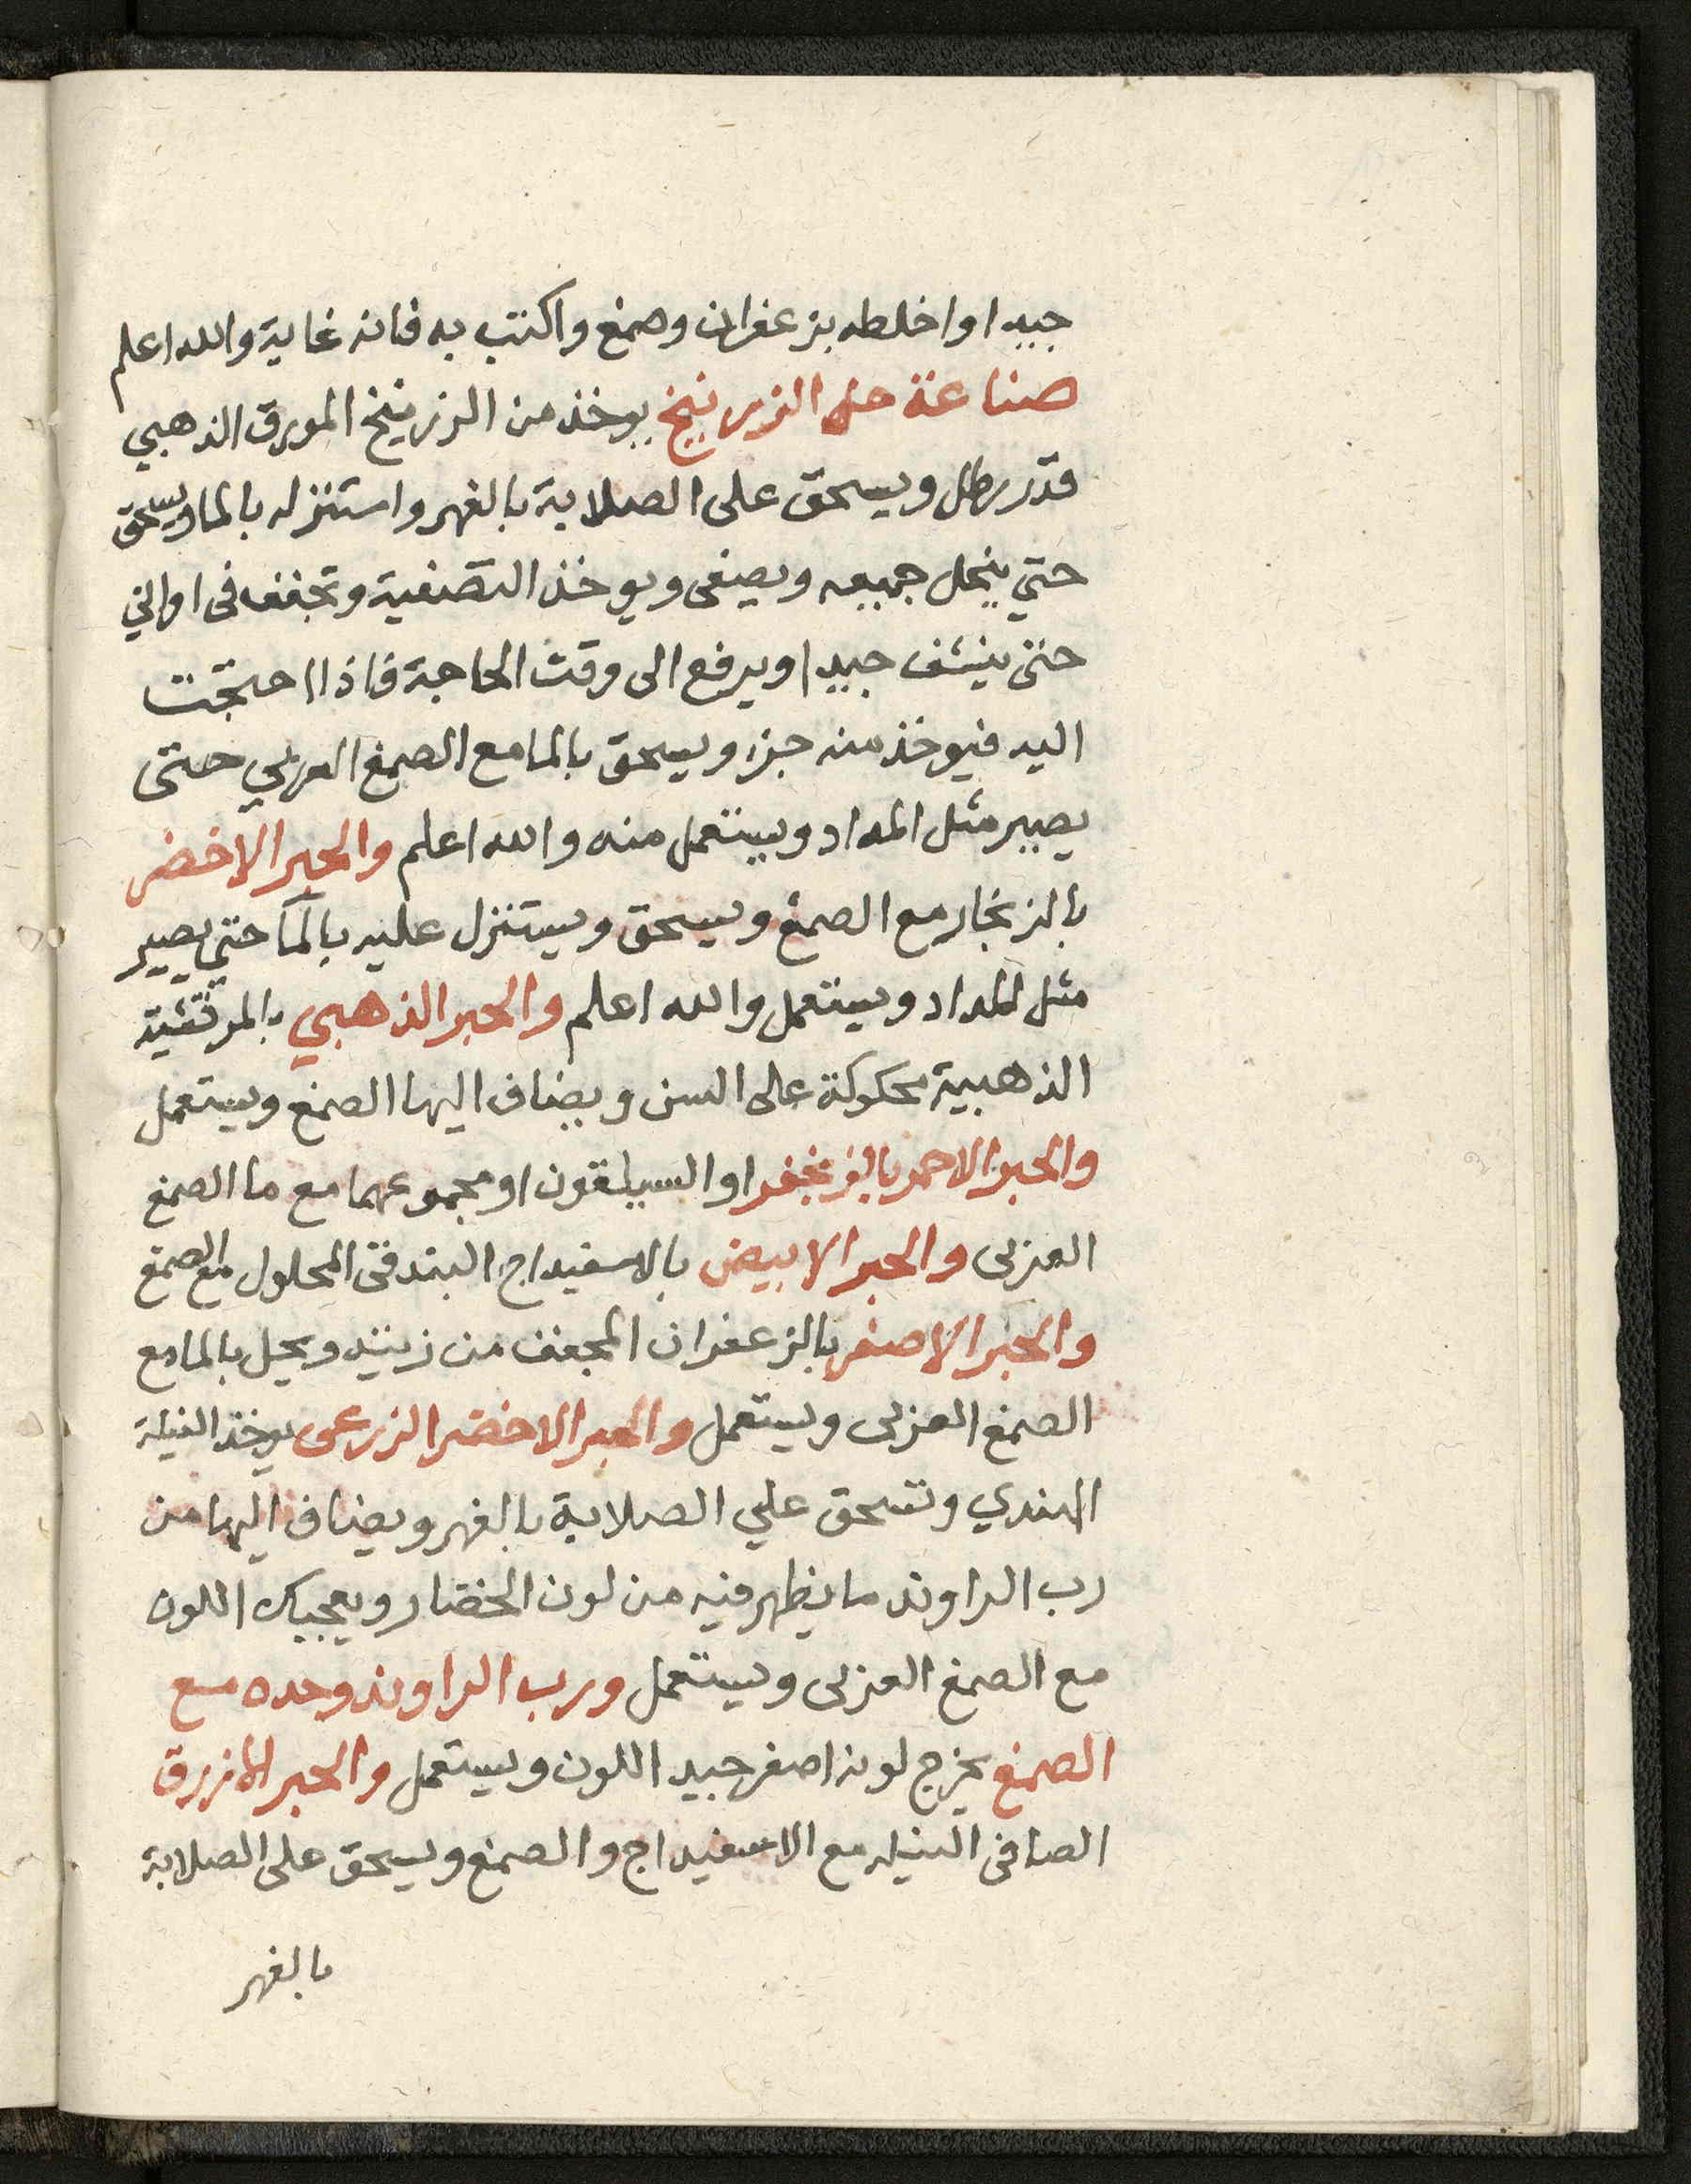 جيدا واخلطه بزعفران وصمغ واكتب به فانه غاية والله اعلم
صناعة حل الزرنيخ يوخذ من الزرنيخ المورق الذهبي
قدر رطل ويسحق على الصلاية بالفهر واستنزله بالما ويسحق
حتي ينحل جميعه ويصفى ويوخذ التصفية وتجففه فى اواني
حتى ينشف جيدا ويرفع الى وقت الحاجة فاذا احتجت
اليه فيوخذ منه جزء ويسحق بالما مع الصمغ العربي حتى
يصير مثل المداد ويستعمل منه والله اعلم والحبر الاخضر
بالزنجار مع الصمغ ويسحق ويستنزل عليه بالمآ حتي يصير
مثل المداد ويستعمل والله اعلم والحبر الذهبي بالمرقثية
الذهبية محكوكة على المسن ويضاف اليها الصمغ ويستعمل
والحبر الاحمر بالزنجفر او السيلقون او مجموعهما مع ما الصمغ
العربى والحبر الابيض بالاسفيداج البندقى المحلول مع الصمغ
والحبر الاصفر بالزعفران المجفف من زيته ويحل بالما مع
الصمغ العربى ويستعمل والحبر الاخضر الزرعى يوخذ النيلة
الهندي وتسحق علي الصلاية بالفهر ويضاف اليها من
رب الراوند ما يظهر فيه من لون الخضار ويعجبك اللون
مع الصمغ العربى ويستعمل ورب الراوند وحده مع
الصمغ يخرج لونه اصفر جيد اللون ويستعمل والحبر الازرق
الصافى النيله مع الاسفيداج والصمغ ويسحق على الصلاية
بالفهر